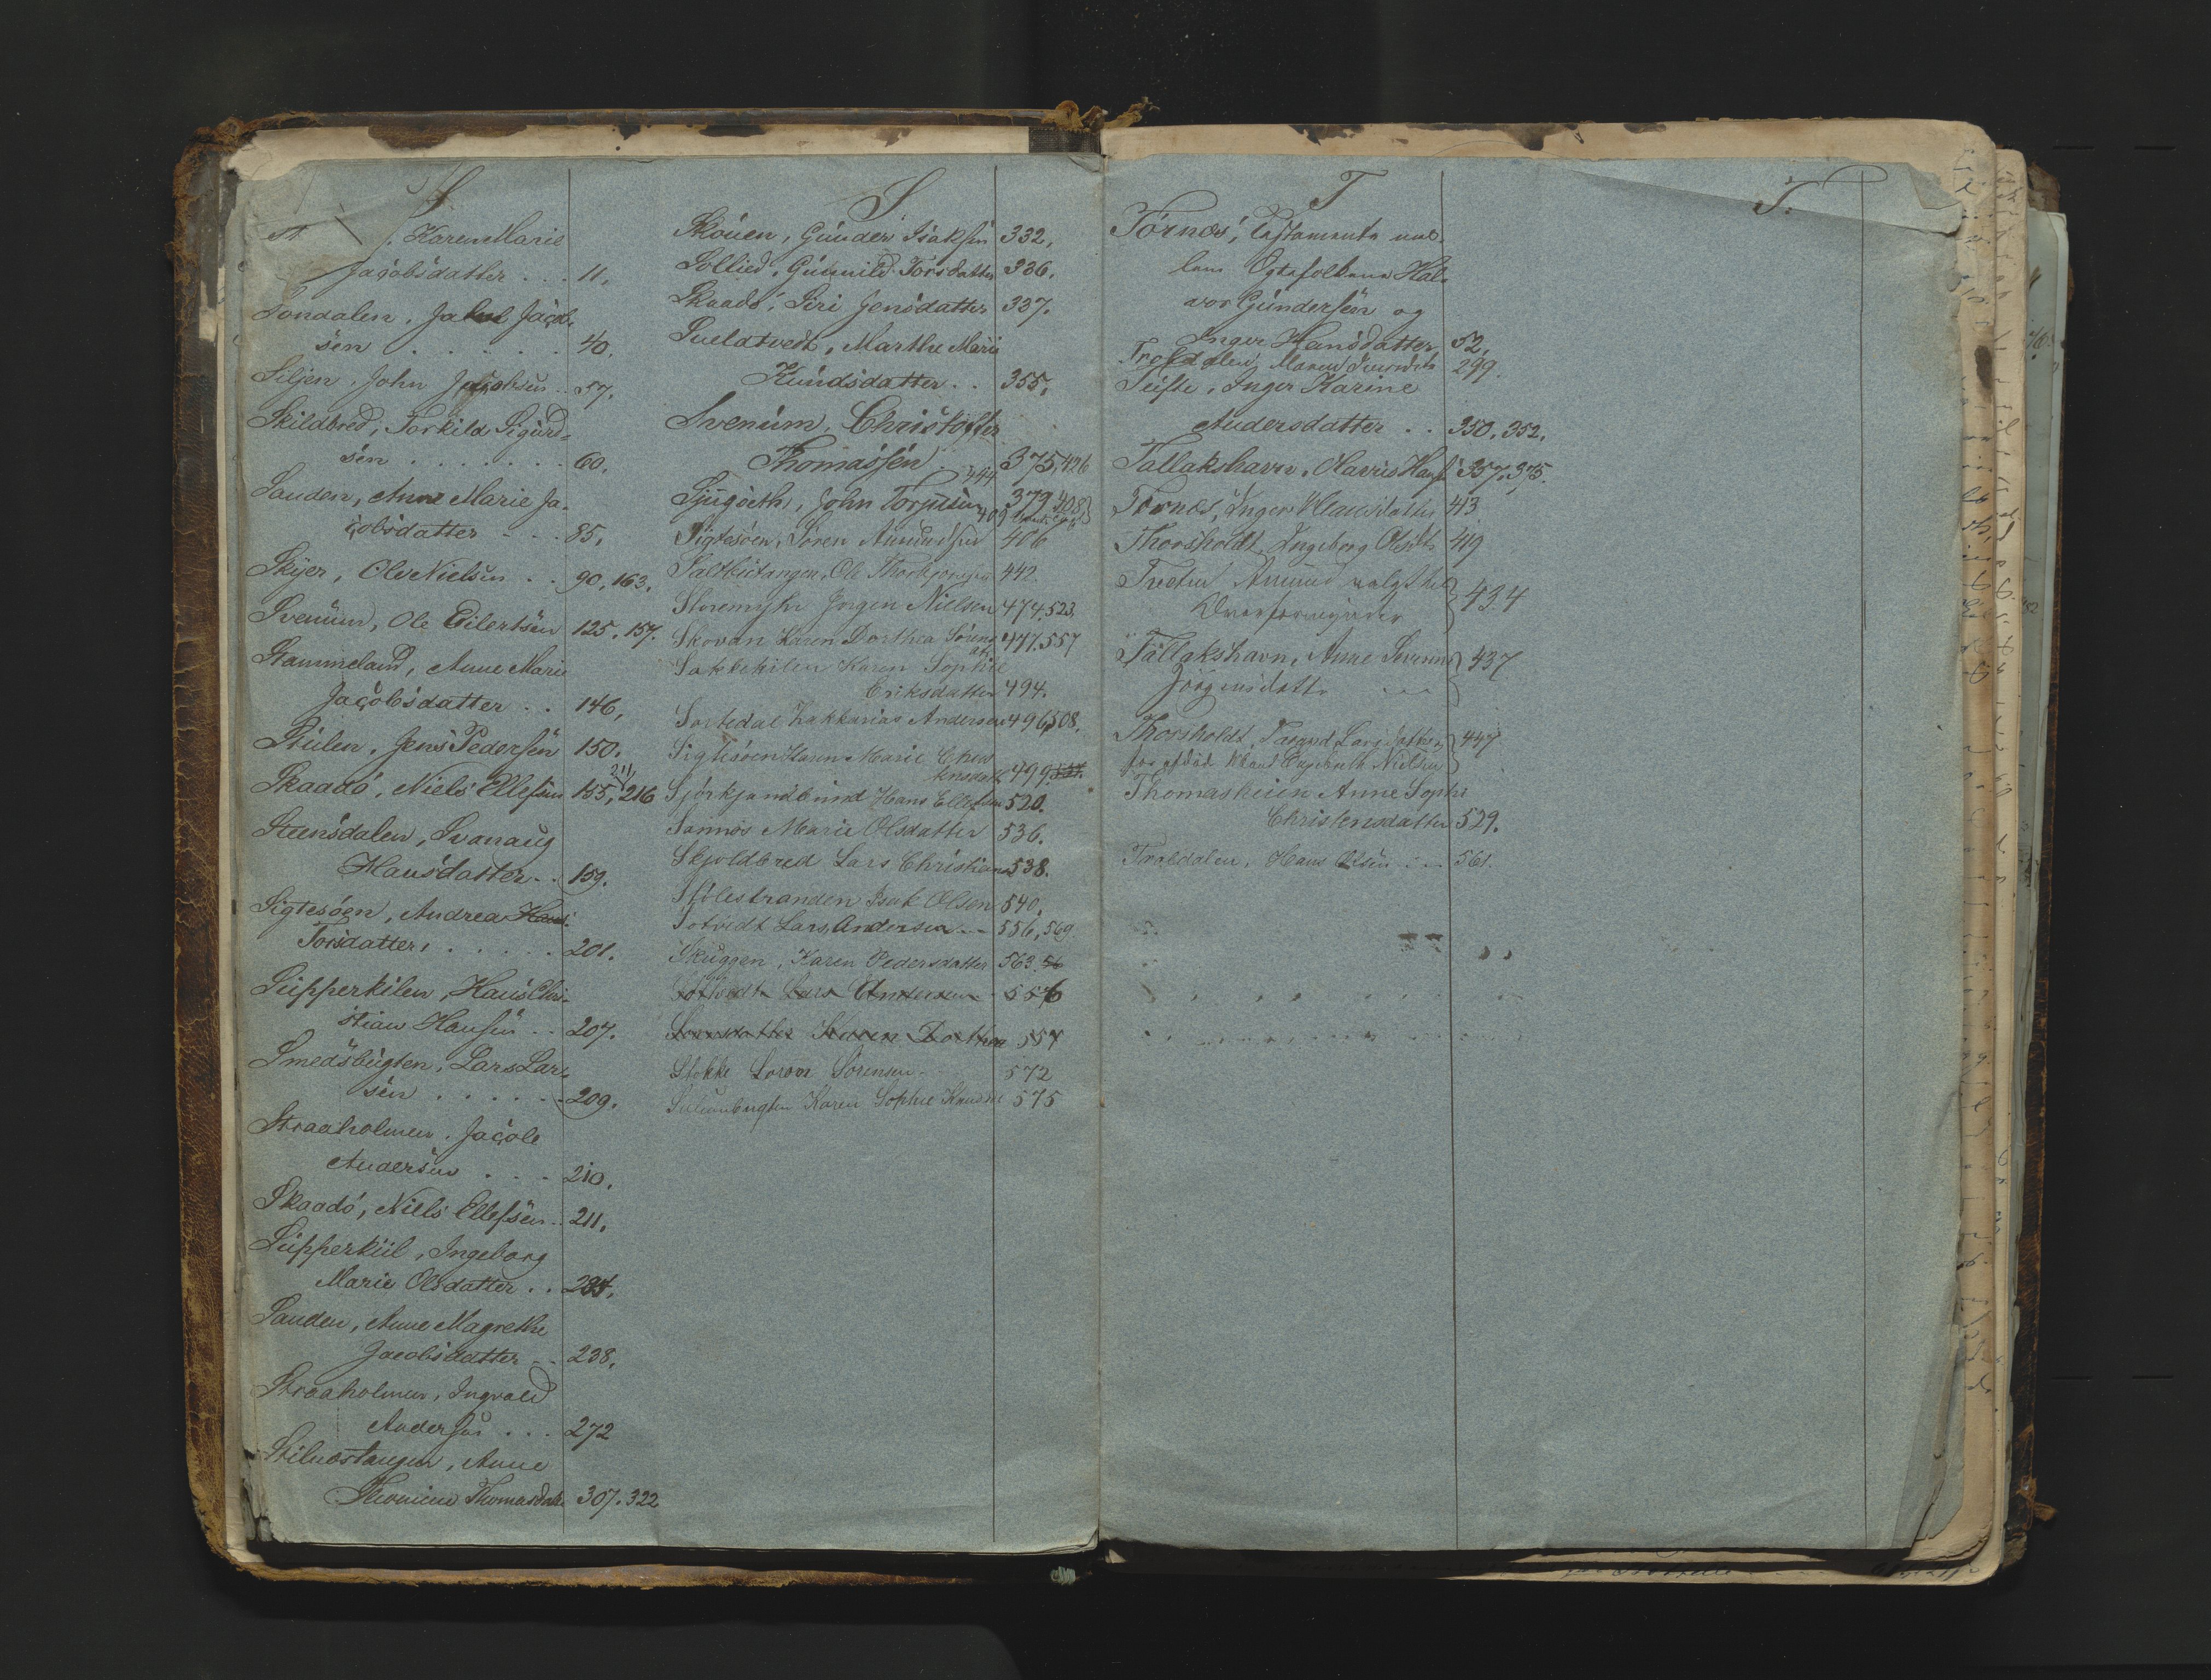 S
Karen Marie
Jacobsdatter . . . 11.
Sondalen, Jacob Jacob-
sen . . . . . . 40.
Siljen, John Jacobsen . . 57.
Skildbred, Torkild Sigurd-
sen . . . . . . . 60.
Sanden, Anne Marie Ja-
cobsdatter - - . 85.
Skijer, Ole Nielsen . . 90, 163.
Svenum, Ole Eilertsen 125. 157.
Stammeland, Anne Marie
Jacobsdatter . . 146,
Stulen, Jens Pedersen 150.
Skaadö, Niels Ellefsen 155, 211, 216
Steensdalen, Svanaug
Hansdatter . . 159.
Sigtesöen, Andrea Hans
Torsdatter, . . . . . 201.
Supperkilen, Hans Chri-
stian Hansen . . 207.
Smedsbugten, Lars Lar-
sen . . . . . . 209.
Straaholmen, Jacob
Andersen . . . 210.
Skaadö, Niels Ellefsen . . 211.
Supperkiil, Ingeborg
Marie Olsdatter . .
Sanden, Anne Magrethe
Jacobsdatter . . 238.
Straaholmen, Ingvald
Andersen . . . 272
Stilnæstangen, Anne
Thomine Thomasdatr 307. 322
S
Skouen, Gunder Isaksen 332,
Sollied, Gunnild Torsdatter 336.
Skaadö, Siri Jensdatter 337.
Sueldtvedt, Marthe Marie
Knudsdatter . . 355,
Svenum, Christoffer
Thomassen 375, 426
444
John 379 408
409
Sigtesöen, Sören Amundsen 406
Saltbutangen, Ole Thorbjörnsen 442
Storemyhr Jörgen Nielsen 474, 523.
Skovan Karen Dorthea Sörens 447. 557
dtr
Sakbekilen Karen Sophie
Eriksdatter 494.
Sortedal Zakkarias Andersen 496, 508.
Sigtesöen Karen Marie Chris
tensdatr 499.
Sjörkjendbrind Hans Ellefsen 520.
Sannös Marie Olsdatter 536.
Skjoldbred Lars Christians 538.
Stölestranden Isak Olsen 540.
Sotvedt Lars Andersen - - 556, 569.
Skuggen, Karen Pedersdatter 563. 56
Sotvedt Lars Andersen - 556
Sörensdatter Karen Dorthea 557
Stokke Soren Sörensen - 572
Karen Sophie 575
T
Törnæs, Testamente mel-
lem Egtefolkene Hal-
vor Gundersen og
Inger Hansdatter 52,
Troldalen, Maren 299.
Teifte, Inger Karine
Andersdatter . . 350. 352.
Tallakshavn, Olavus Hans 357. 375.
Törnæs, Inger Klausdatter 413
Thorsholdt, Ingeborg Olsdtr 419
Tveten Amund valgt til
Overformynder } 434
Tallakshavn, Anne Severine
Jörgensdatter - - - } 437
Thorsholdt, Taran Larsdatter
for afdöd Mand Engebreth Nielsen } 447
Thomaskiien Anne Sophi
Christensdatter 529.
Troldalen, Hans Olsen - - - 561.
T.